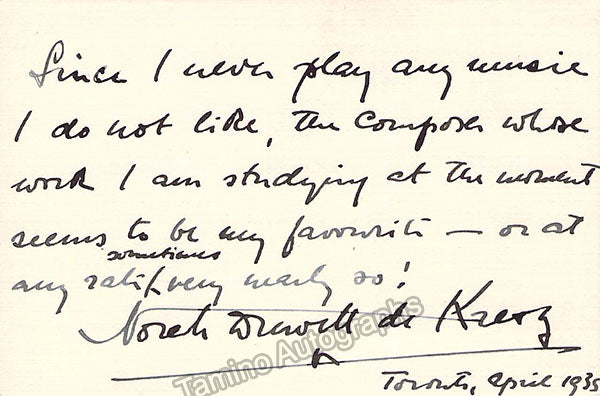 Since I never play any music
I do not like, the composer whose
work I am studying at the moment
seems to be my favourite — or at
sometimes
any rate very nearly so!
Norah Drewett de Kresz
Tamino Autographs
Toronto, April 1935